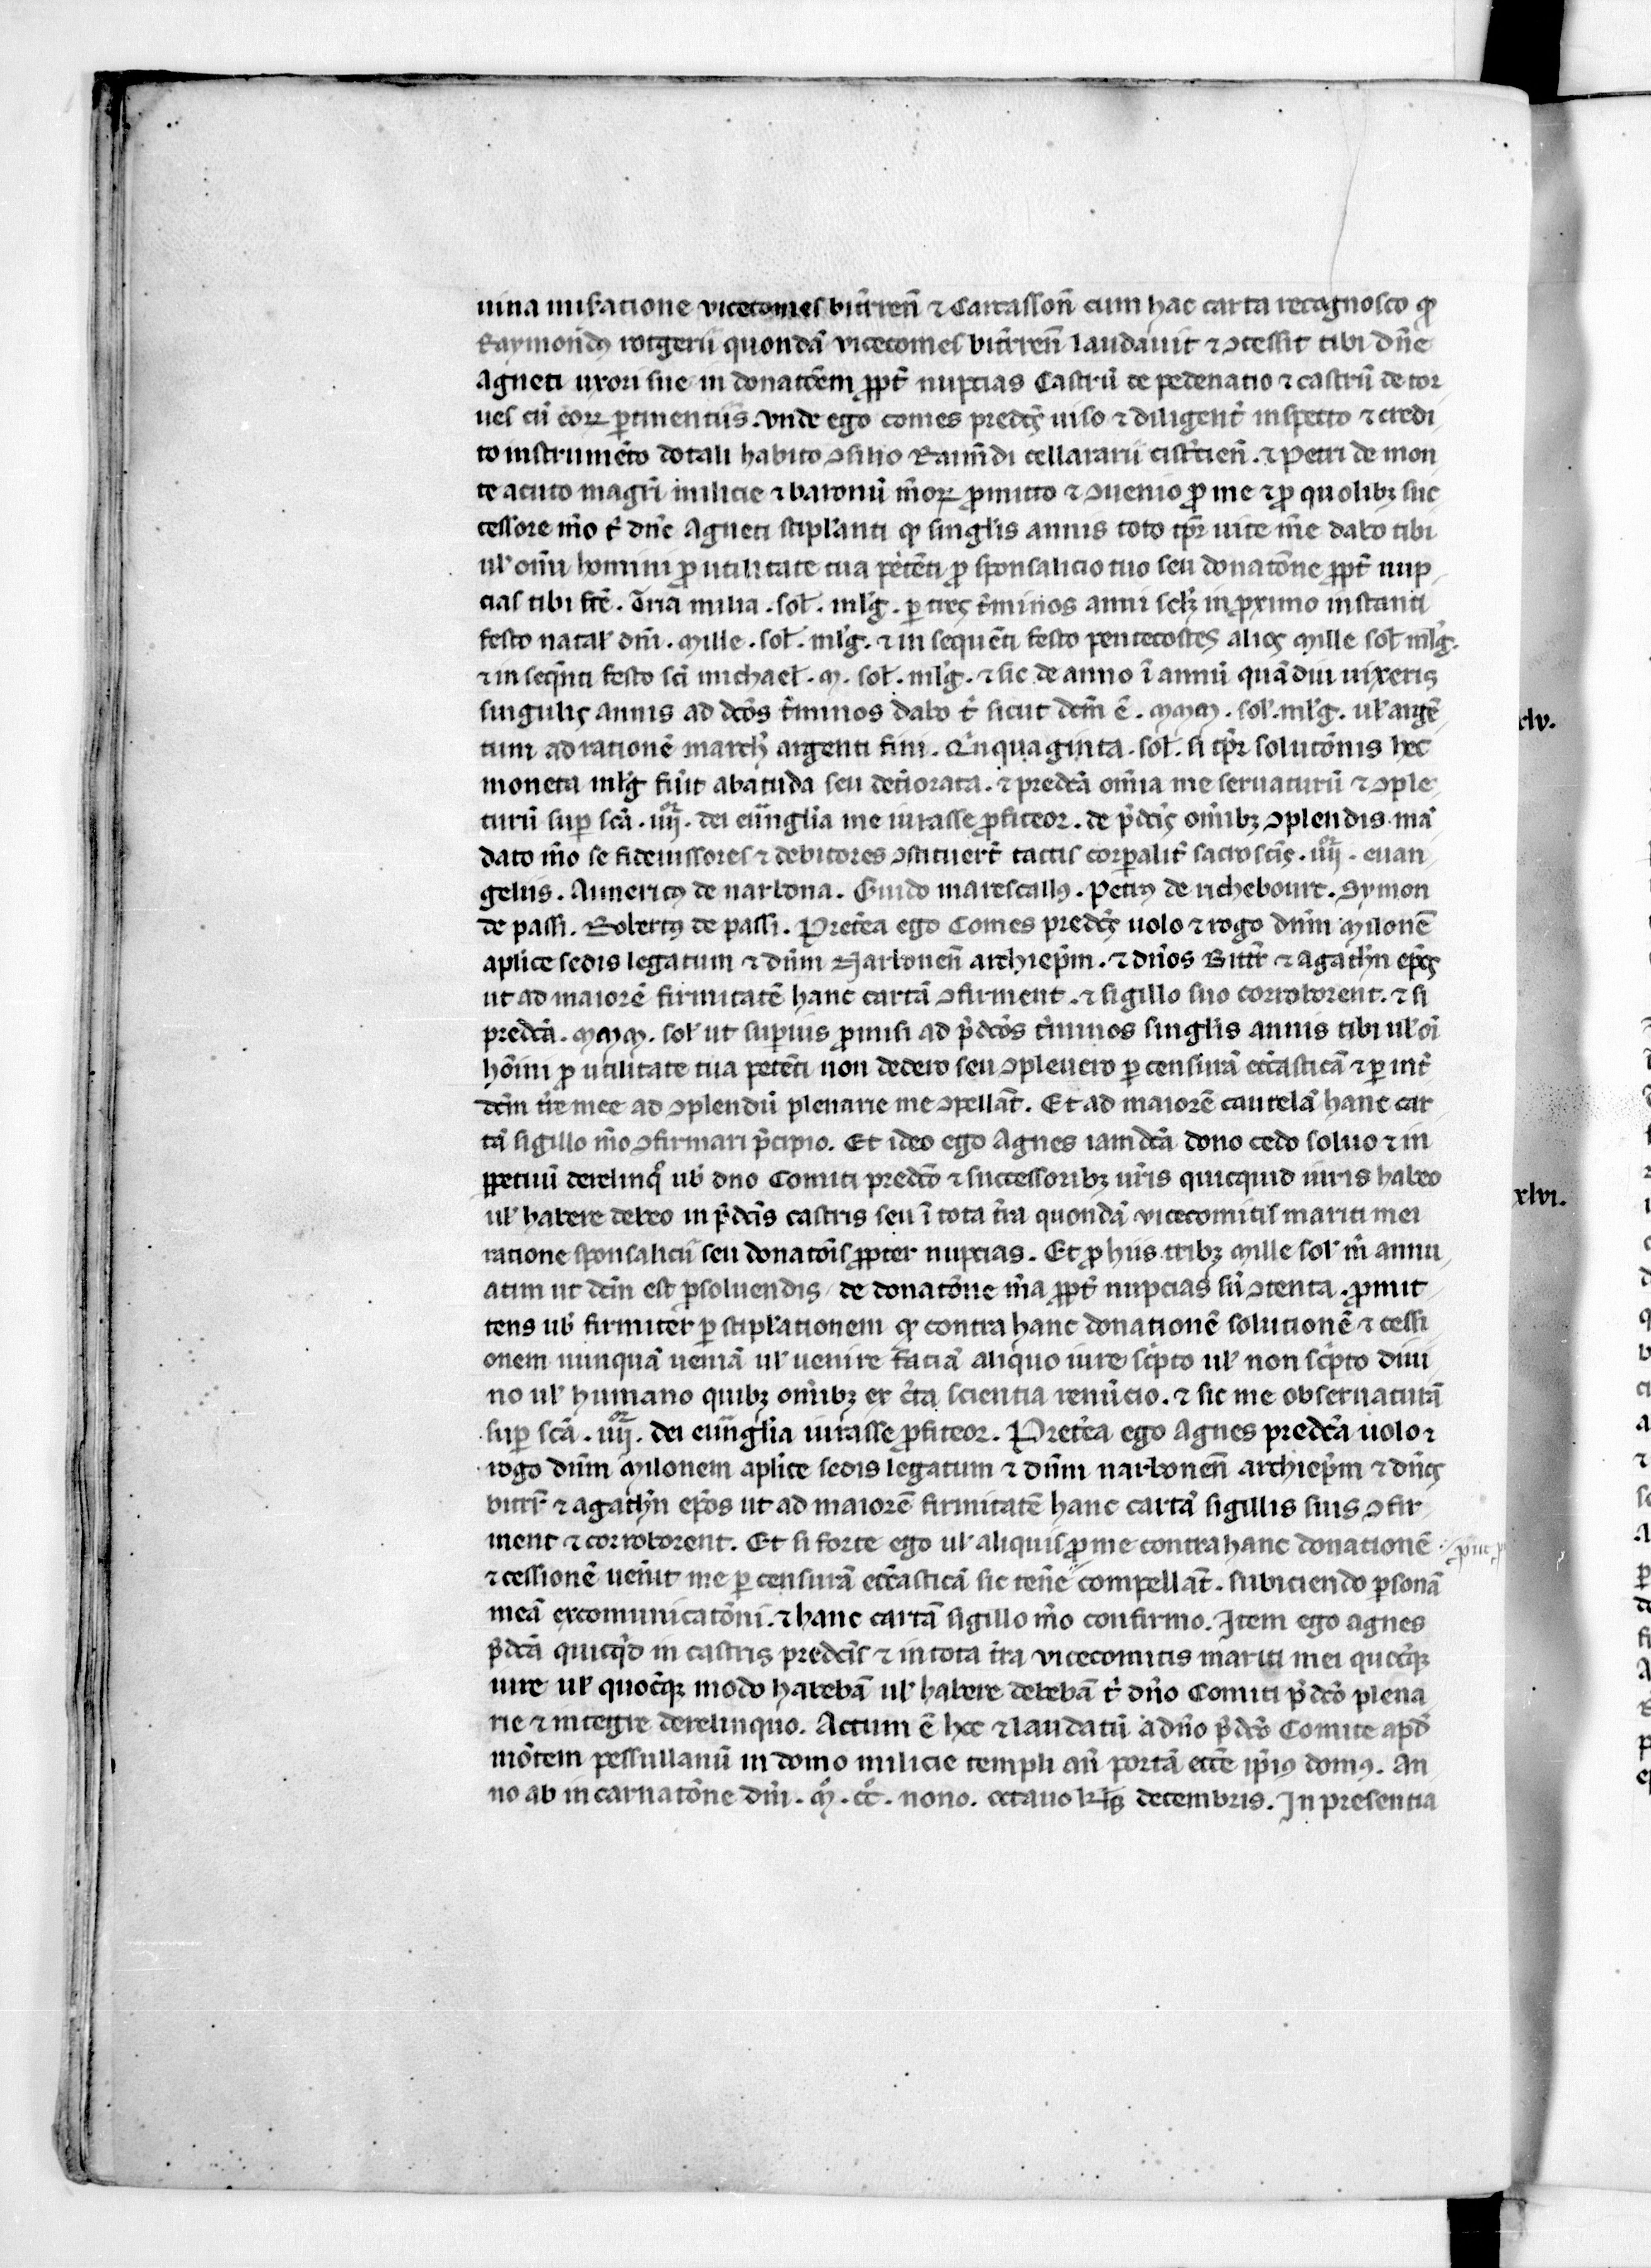 uina miſatione vicecomeſ bit̃ren̄ ⁊ Carcasson̄ cum hac carta recognosco qꝫ
Raymondꝰ rotgerii quondã vicecomeſ bit̃ren̄ laudauit ⁊ ↄceſſit tibi dn̄e
Agneti uxori ſue in donatōem ꝓpt̃ nupcias Caſtrũ de pedenatio ⁊ caſtrũ de tor
ueſ cũ eoꝝ ꝑtinentiis. vnde ego comes predc̄ꝰ uiſo ⁊ diligent̃ inſpecto ⁊ credi
to inſtrumēto dotali habito ↄſilio Raim̄di cellararii ciſt̃cien̄. ⁊ Petri de mon
te acuto magr̃i milicie ⁊ baronũ m̃oꝝ ꝓmitto ⁊ ↄuenio ꝓ me ⁊ ꝓ quolibꝫ ſuc
ceſſore m̃o t̃ dn̄e Agneti ſtipl̃anti qꝫ ſingl̃is annis toto tp̃r uite m̃e dabo tibi
ul̃ om̃i homini ꝓ utilitate tua petēti ꝓ ſponſalicio tuo ſeu donatōne ꝓpt̃ nup
cias tibi fc̄e. Tria milia. ſol̃. ml̃g̃. ꝑ tres t̃minos anni ſcl̃ꝫ in ꝓximo inſtanti
feſto natal̃ dn̄i. Mille. ſol̃. ml̃g̃. ⁊ in ſequēti feſto pentecoſtes alios Mille ſol̃ ml̃g̃.
⁊ in ſeqn̄ti feſto ſc̄i michael̃. M. ſol̃. ml̃g̃. ⁊ ſic de anno ĩ annũ quãdiu uixeris
ſingulis annis ad dc̄os t̃minos dabo t̃ ſicut dc̄m ē. MMM. ſol̃. ml̃g̃. ul̃ argē
tum ad rationē march̃ argenti fini. Q̃nquaginta. ſol̃. ſi tp̃r ſolutōnis hec
moneta ml̃g̃ fũit abatuda ſeu det̃iorata. ⁊ predc̄a om̃ia me ſeruaturũ ⁊ ↄple
turũ ſuꝑ ſc̄a. iiijoꝛ. dei euũgl̃ia me iuraſſe ꝓfiteor. de p̃dc̄is om̃ibꝫ ↄplendis mã
dato m̃o ſe fideiuſſores ⁊ debitores ↄſtituert̃ tactis corꝑalit̃ ſacroſc̄is. iiijoꝛ. euan
geliis. Aimericꝰ de narbona. Guido mareſcallꝰ. Petrꝰ de richebourc. Symon
de paſſi. Robertꝰ de paſſi. Pret̃ea ego Comes predc̄ꝰ uolo ⁊ rogo dn̄m Milonē
aplice ſedis legatum ⁊ dn̄m Narbonen̄ archiep̃m. ⁊ dn̄os Bitr̃ ⁊ agath̃n ep̃os
ut ad maiorē firmitatē hanc cartã ↄfirment. ⁊ ſigillo ſuo corroborent. ⁊ ſi
predc̄a. MMM. ſol̃ ut ſuꝑius ꝓmiſi ad p̃dc̄os t̃minos ſingl̃is annis tibi ul̃ oĩ
hōini ꝓ utilitate tua petēti non dedero ſeu ↄpleuero ꝑ cenſurã ecc̄aſticã ⁊ ꝑ int̃
dc̄m t̃re mee ad ↄplendũ plenarie me ↄpellãt. Et ad maiorē cautelã hanc car
tã ſigillo m̃o ↄfirmari p̃cipio. Et ideo ego Agnes iam dc̄a dono cedo ſoluo ⁊ in
ꝑpetuũ derelinq̊ uob̃ dn̄o Comiti predc̄o ⁊ ſucceſſoribꝫ ur̃is quicquid iuris habeo
ul̃ habere debeo in p̃dc̄is caſtris ſeu ĩ tota t̃ra quondã vicecomitiſ mariti mei
ratione ſponſalicii ſeu donatōiſ ꝓpter nupcias. Et ꝓ hiis tribꝫ Mille ſol̃ m̃ annu
atim ut dc̄m eſt ꝑſoluendis / de donatōne m̃a ꝓpt̃ nupcias ſũ ↄtenta. ꝓmit
tens uob̃ firmiter ꝑ ſtipl̃ationem qꝫ contra hanc donationē ſolutionē ⁊ ceſſi
onem nunquã ueniã ul̃ uenire faciã aliquo iure ſc̃pto ul̃ non ſc̃pto diui
no ul̃ humano quibꝫ om̃ibꝫ ex c̃ta ſcientia renũcio. ⁊ ſic me obſeruaturã
ſuꝑ ſc̄a. iiijoꝛ. dei euũgl̃ia iuraſſe ꝓfiteor. Pret̃ea ego Agnes predc̄a uolo ⁊
rogo dn̄m Milonem aplice ſedis legatum ⁊ dn̄m narbonen̄ archiep̃m ⁊ dn̄os
bitr̃ ⁊ agath̃n ep̃os ut ad maiorē firmitatē hanc cartã ſigillis ſuis ↄfir
ment ⁊ corroborent. Et ſi forte ego ul̃ aliquiſ ꝓ me contra hanc donationē
⁊ ceſſionē uen̄it me ꝑ cenſurã ecc̄aſticã ſic ten̄e compellãt. ſubiciendo ꝑſonã
meã excomunicatōni. ⁊ hanc cartã ſigillo m̃o confirmo. Item ego agnes
p̃dc̄a quicq̃d in caſtris predc̄iſ ⁊ in tota t̃ra vicecomitis mariti mei quocq̃ꝫ
iure ul̃ quocq̃ꝫ modo habebã ul̃ habere debebã t̃ dn̄o Comiti p̃dc̄o plena
rie ⁊ integre derelinquo. Actum ē hoc ⁊ laudatũ a dn̄o p̃dc̄o Comite apd̃
mōtem peſſullanũ in domo milicie templi an̄ portã ecc̄e ip̃iꝰ domꝰ. An
no ab incarnatōne dn̄i. Mͦ. ccͦ. nono. octauo kl̃as decembris. In preſentia
xlv.
xlvi.